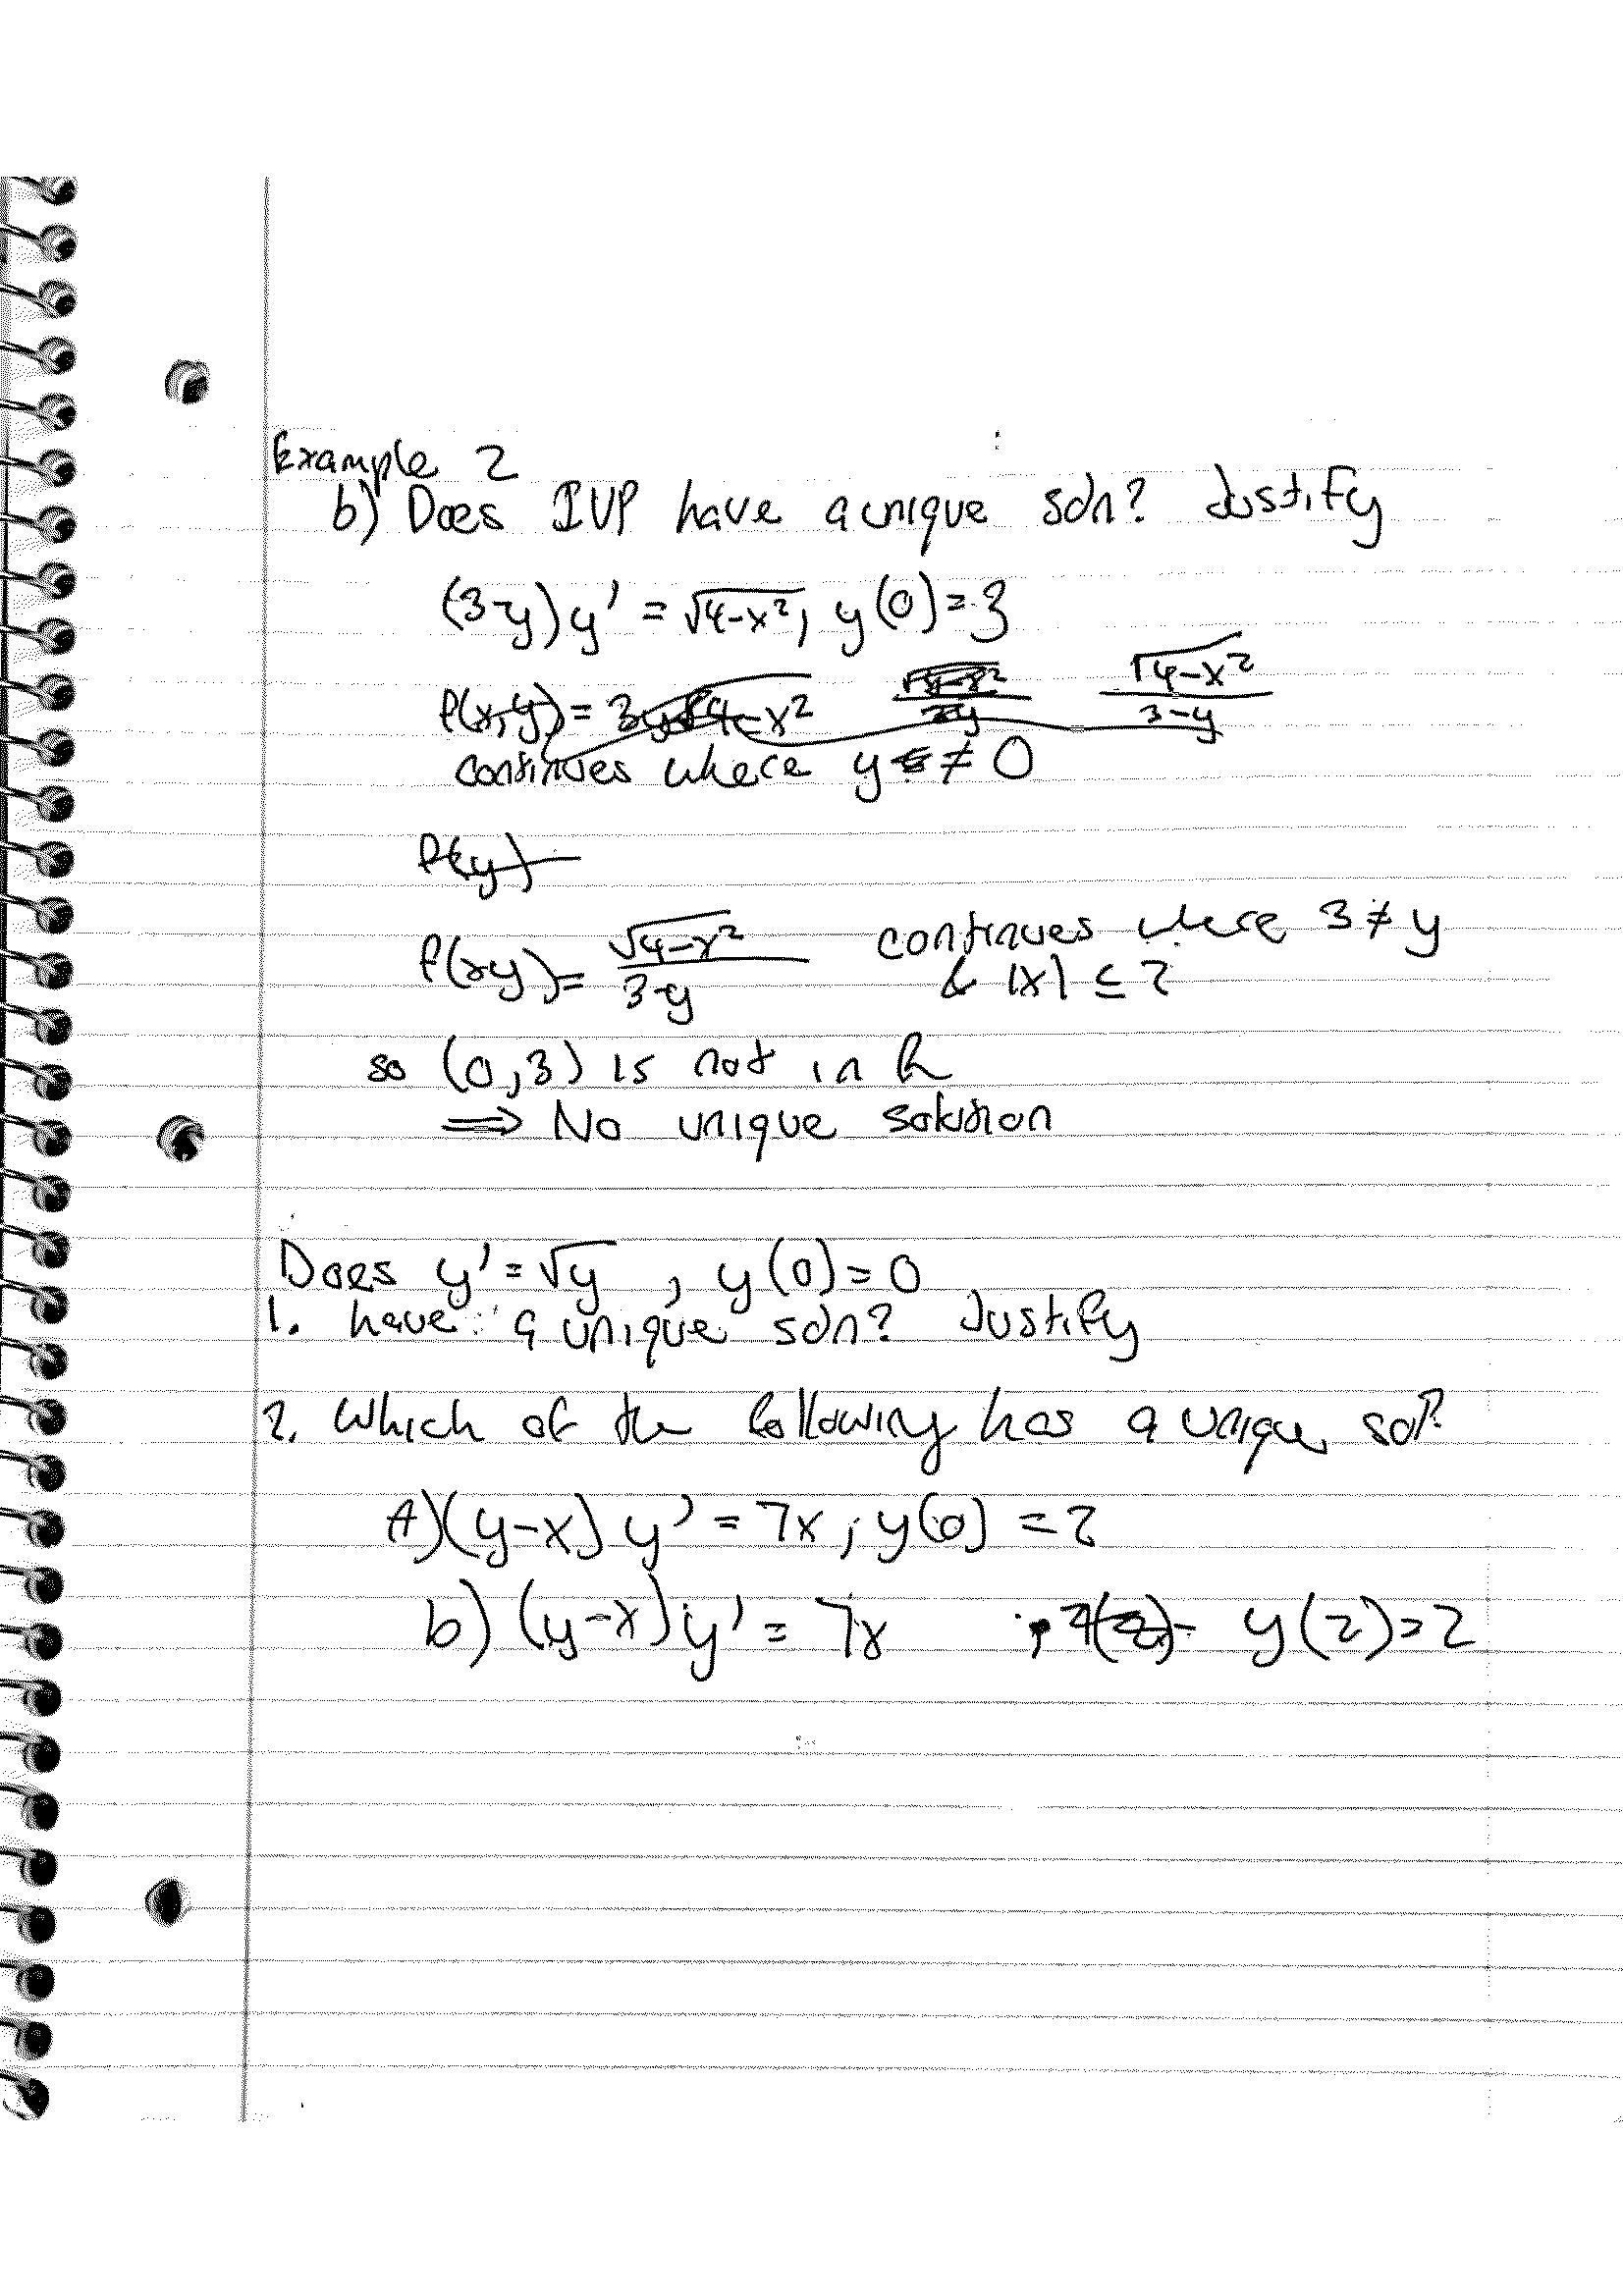 Example 2
b) Does IVP have a unique soln? Justify
(3-y)y' = √4-x², y(0)=3
f(x,y) = 3y√4-x² √4-x²/3y √4-x²/3-y
continues where y ≠ 0
f(y)
f(x,y) = √4-x²/3-y continues where 3≠y
& |x| ≤ 2
so (0,3) is not in R
⟹ No unique solution
Does y' = √y , y(0) = 0
1. have a unique soln? Justify
2. Which of the following has a unique sol?
A) (y-x) y' = 7x ; y(0) = 2
b) (y-x) y' = 7x ; y(2) = 2